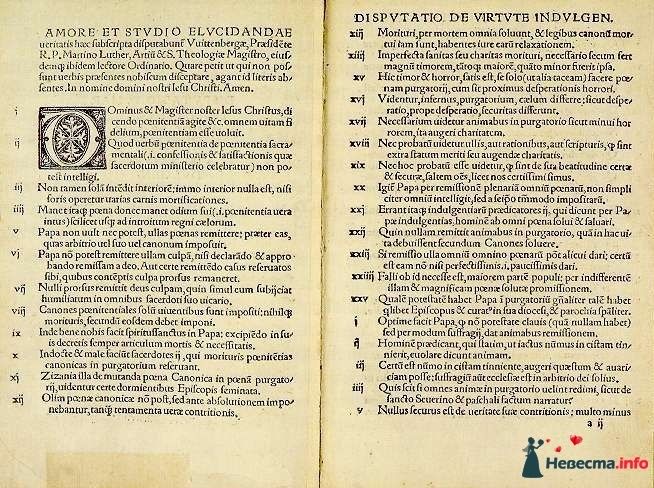 AMORE ET STVDIO ELVCIDANDAE
ueritatis hæc subscripta disputabunt̃ Vuittenbergæ, Præsidẽte
R. P. Martino Luther, Artiũ & S. Theologiæ Magistro, eius-
dem ibidem lectore Ordinario. Quare petit ut qui non pos-
sunt uerbis præsentes nobiscum disceptare, agant id literis ab-
sentes. In nomine domini nostri Iesu Christi. Amen.
i DOminus & Magister noster Iesus Christus, di-
cendo pœnitentiã agite &c. omnem uitam fi-
delium, pœnitentiam esse uoluit.
ij Quod uerbũ pœnitentia de pœnitentia sacra-
mentali (.i. confessionis & satisfactionis quæ
sacerdotum ministerio celebratur) non po-
test intelligi.
iij Non tamen solã intẽdit interiorẽ; immo interior nulla est, nisi
foris operetur uarias carnis mortificationes.
iiij Manet itaqȝ pœna donec manet odium sui (.i. pœnitentia uera
intus) scilicet usqȝ ad introitum regni cælorum.
v Papa non uult nec potest, ullas pœnas remittere; præter eas,
quas arbitrio uel suo uel canonum imposuit.
vj Papa nõ potest remittere ullam culpã, nisi declarãdo & appro-
bando remissam a deo. Aut certe remittẽdo casus reseruatos
sibi, quibus contẽptis culpa prorsus remaneret.
vij Nulli prorsus remittit deus culpam, quin simul eum subijciat
humiliatum in omnibus sacerdoti suo uicario.
viij Canones pœnitentiales solũ uiuentibus sunt impositi; nihilqȝ
morituris, secundũ eosdem debet imponi.
ix Inde bene nobis facit spiritussanctus in Papa; excipiẽdo in su-
is decretis semper articulum mortis & necessitatis.
x Indocte & male faciũt sacerdotes ij, qui morituris pœnitẽtias
canonicas in purgatorium reseruant.
xj Zizania illa de mutanda pœna Canonica in pœnã purgato-
rij, uidentur certe dormientibus Episcopis seminata.
xij Olim pœnæ canonicæ nõ post, sed ante absolutionem impo-
nebantur, tanqȝ tentamenta ueræ contritionis.
DISPVTATIO DE VIRTVTE INDVLGEN.
xiij Morituri, per mortem omnia soluunt, & legibus canonũ mor-
tui iam sunt, habentes iure earũ relaxationem.
xiiij Imperfecta sanitas seu charitas morituri, necessario secum fert
magnũ timorem, tãtoqȝ maiorẽ, quãto minor fuerit ipsa.
xv Hic timor & horror, satis est, se solo (ut alia taceam) facere pœ-
nam purgatorij, cum sit proximus desperationis horrori.
xvj Videntur, infernus, purgatorium, cælum differre; sicut despe-
ratio, prope desperatio, securitas differunt.
xvij Necessarium uidetur animabus in purgatorio sicut minui hor-
rorem, ita augeri charitatem.
xviij Nec probatũ uidetur ullis, aut rationibus, aut scripturis, ꝙ sint
extra statum meriti seu augendæ charitatis.
xix Nec hoc probatũ esse uidetur, ꝙ sint de sua beatitudine certæ
& securæ, saltem oẽs, licet nos certissimi simus.
xx Igiť Papa per remissionẽ plenariã omniũ pœnarũ, non simpli-
citer omniũ intelligit, sed a seipõ tm̃modo impositarũ.
xxj Errant itaqȝ indulgentiarũ prædicatores ij, qui dicunt per Pa-
pæ indulgentias, hominẽ ab omni pœna solui & saluari.
xxij Quin nullam remittit animabus in purgatorio, quã in hac ui-
ta debuissent secundum Canones soluere.
xxiij Si remissio ulla omniũ omnino pœnarũ põt alicui dari; certũ
est eam nõ nisi perfectissimis .i. paucissimis dari.
xxiiij Falli ob id necesse est, maiorem partẽ populi; per indifferentẽ
illam & magnificam pœnæ solutæ promissionem.
xxv Qualẽ potestatẽ habet Papa ĩ purgatoriũ gñaliter talẽ habet
qlibet Episcopus & curať in sua diocesi, & parochia spãliter.
j Optime facit Papa, ꝙ nõ potestate clauis (quã nullam habet)
sed per modum suffragij, dat animabus remissionem.
ij Hominẽ prædicant, qui statim, ut iactus nũmus in cistam tin-
nierit, euolare dicunt animam.
iij Certũ est nũmo in cistam tinniente, augeri quæstum & auari-
ciam posse; suffragiũ aũt ecclesiæ est in arbitrio dei solius.
iiij Quis scit si omnes animæ in purgatorio uelint redimi, sicut de
sancto Seuerino & paschali factum narratur.
v Nullus securus est de ueritate suæ contritionis; multo minus
a ij
Невеста.info